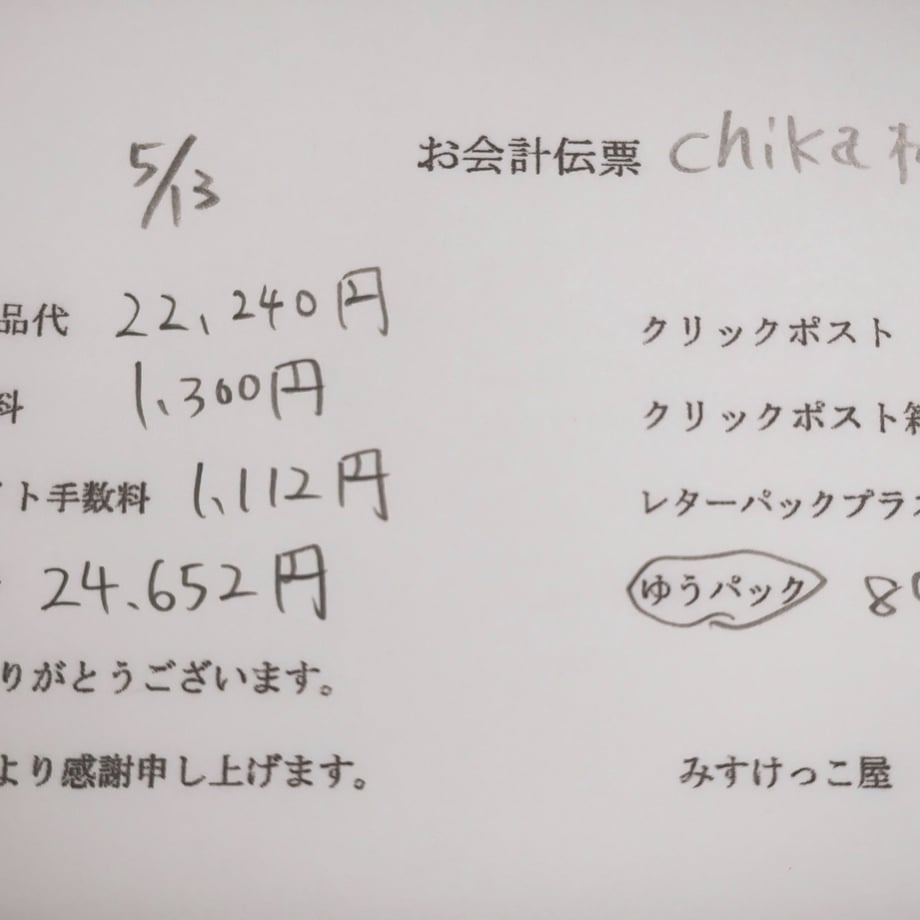 5/13
お会計伝票 chika
品代 22,240円
料 1,300円
ト手数料 1,112円
24.652円
りがとうございます。
より感謝申し上げます。
クリックポスト
クリックポスト箱
レターパックプラス
ゆうパック 80
みすけっこ屋